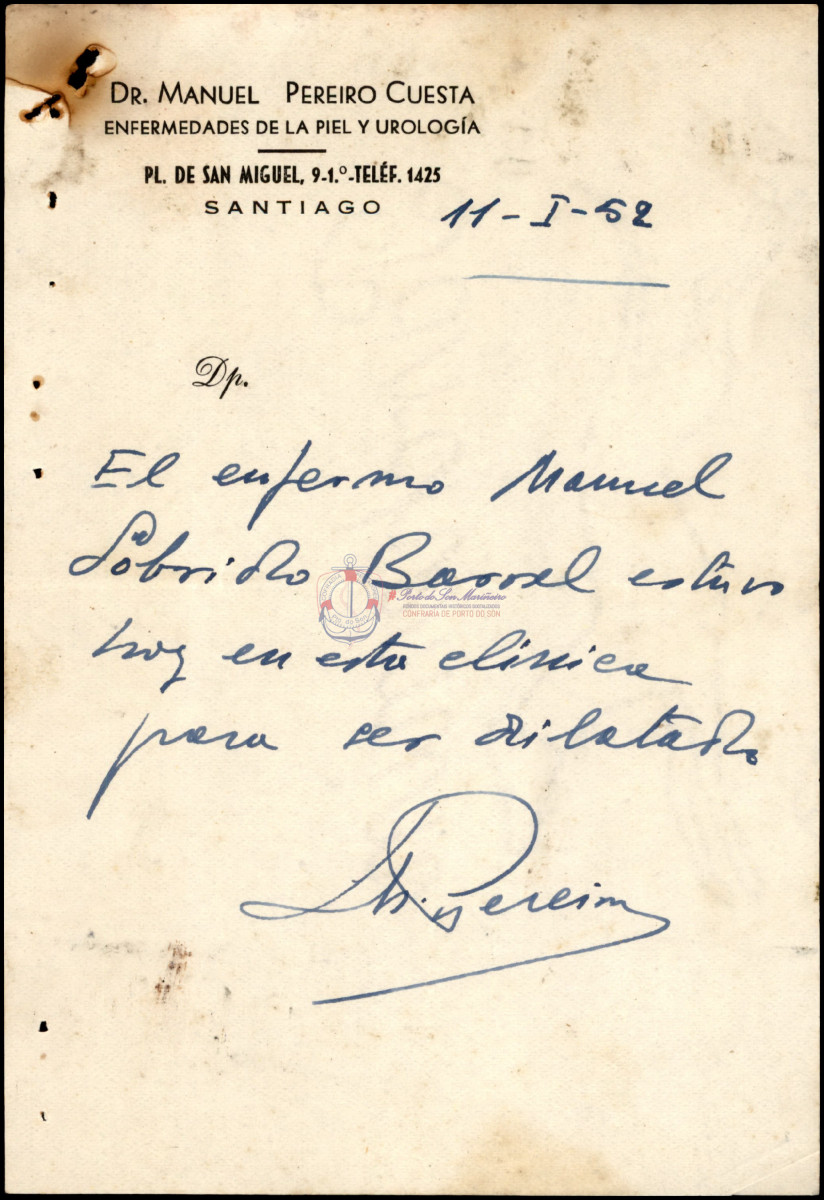 DR. MANUEL PEREIRO CUESTA
ENFERMEDADES DE LA PIEL Y UROLOGÍA
PL. DE SAN MIGUEL, 9-1.º-TELÉF. 1425
SANTIAGO
11-I-52
Dp.
El enfermo Manuel
Sobrido Barral estuvo
hoy en esta clínica
para ser dilatado
Porto do Son Mariñeiro
CONFRARIA DE PORTO DO SON
M. Pereiro